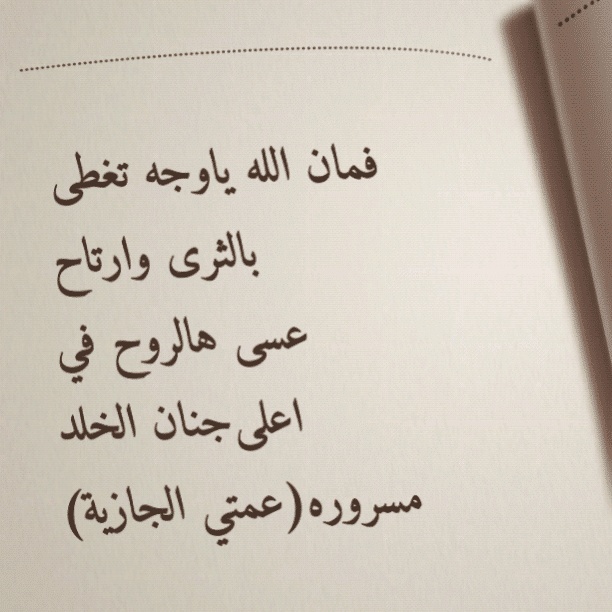 فمان الله ياوجه تغطى
بالثرى وارتاح
عسى هالروح في
اعلى جنان الخلد
مسروره (عمتي الجازية)